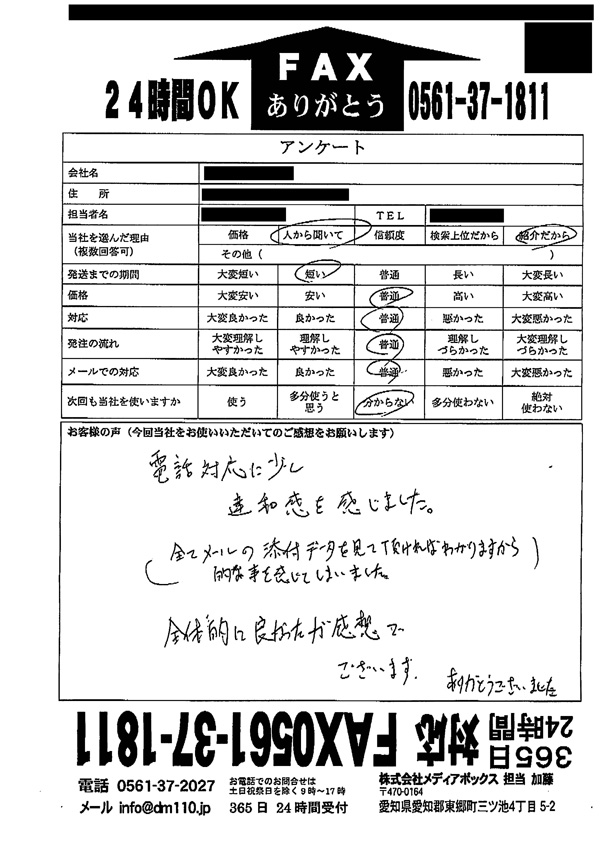 FAX
24時間OK ありがとう 0561-37-1811
アンケート
会社名
住　所
担当者名 TEL
当社を選んだ理由（複数回答可） 価格 人から聞いて 信頼度 検索上位だから 紹介だから
その他（ ）
発送までの期間 大変短い 短い 普通 長い 大変長い
価格 大変安い 安い 普通 高い 大変高い
対応 大変良かった 良かった 普通 悪かった 大変悪かった
発注の流れ 大変理解しやすかった 理解しやすかった 普通 理解しづらかった 大変理解しづらかった
メールでの対応 大変良かった 良かった 普通 悪かった 大変悪かった
次回も当社を使いますか 使う 多分使うと思う 分からない 多分使わない 絶対使わない
お客様の声（今回当社をお使いいただいてのご感想をお願いします）
電話対応に少し
違和感を感じました。
（全てメールの添付データを見て頂ければわかりますから
的な事を感じてしまいました。）
全体的に良かったが感想で
ございます.
ありがとうございました
365日
24時間 対応 FAX0561-37-1811
電話 0561-37-2027 お電話でのお問合せは 土日祝祭日を除く9時～17時 株式会社メディアボックス 担当 加藤
〒470-0164
メール info@dm110.jp 365日 24時間受付 愛知県愛知郡東郷町三ツ池4丁目5-2